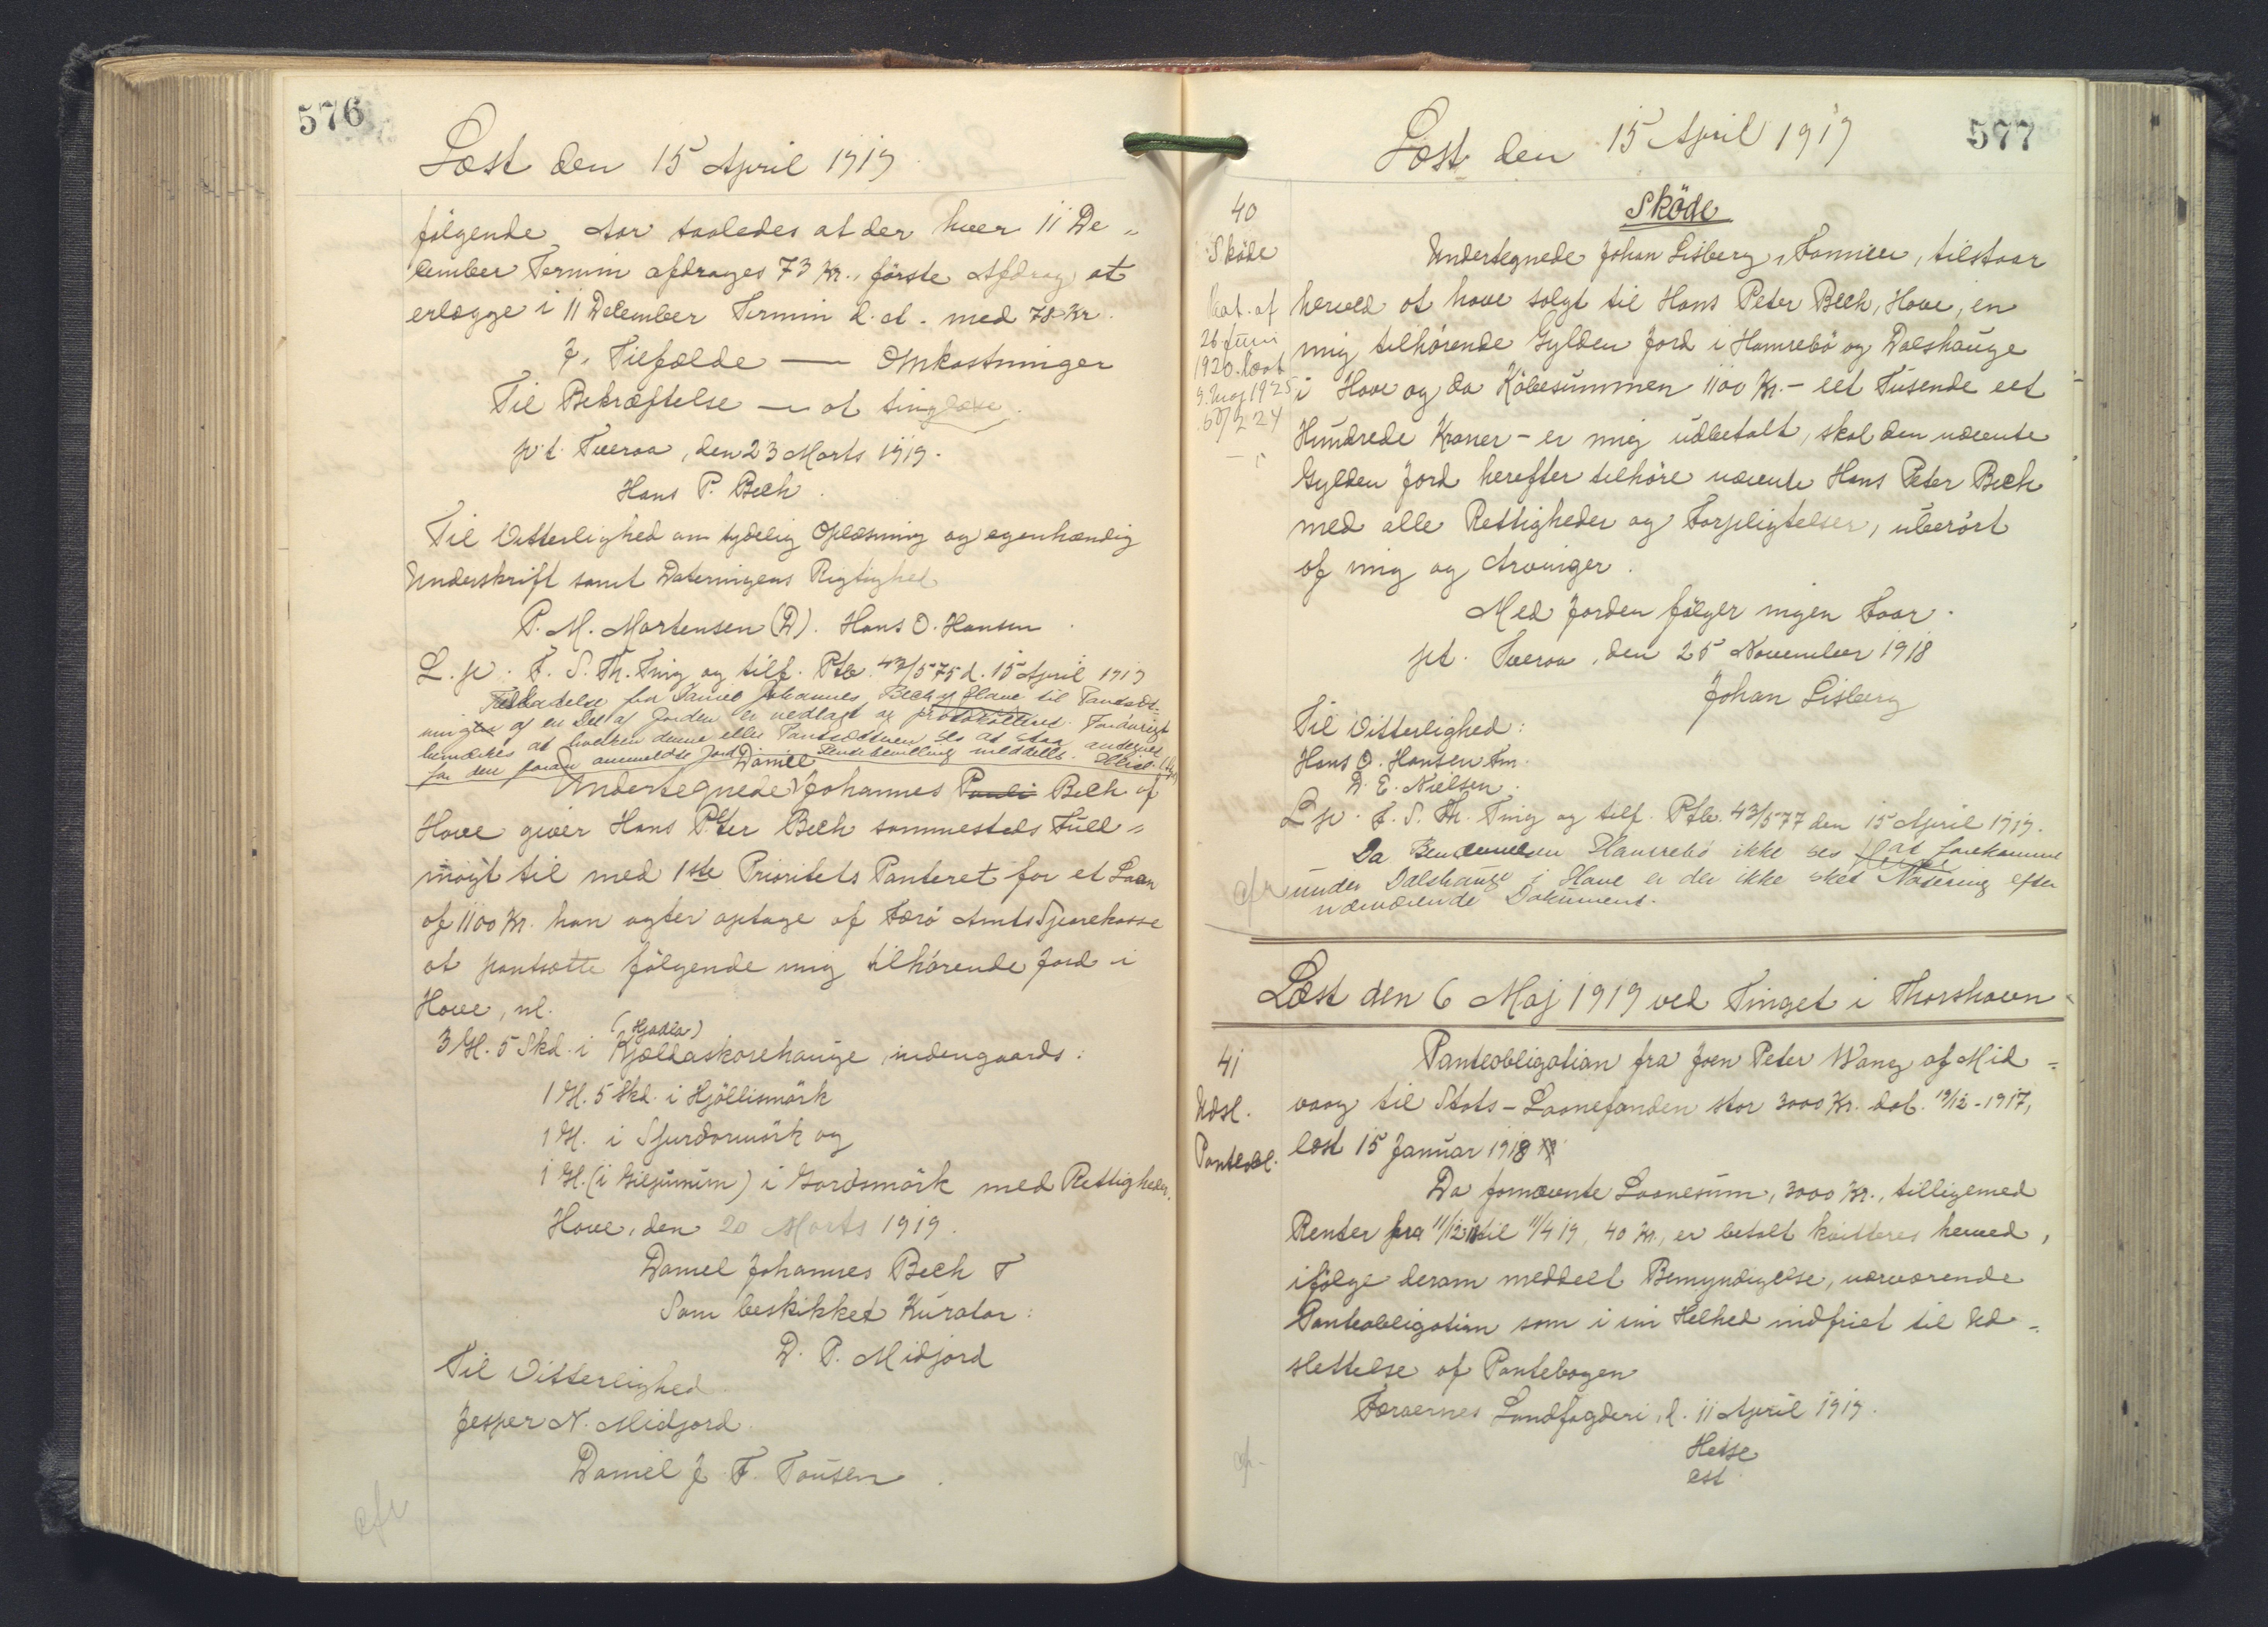 576
Læst den 15 April 1919
følgende Aar saaledes at der hver 11 De-
cember Termin afdrages 73 Kr., første Afdrag at
erlægge i 11 December Termin d.A. med 78 Kr.
I, Tilfælde — Omkostninger
Til Bekræftelse — at tinglæse.
p.t. Tveraa, den 23 Marts 1919.
Hans P. Bech.
Til Vitterlighed om tydelig Oplæsning og egenhændig
Underskrift samt Dateringens Rigtighed
P. M. Mortensen (D). Hans O. Hansen
L. p. F. S. Th. Ting og tilf. Ptb. 43/575 d. 15 April 1919
Tilladelse fra Daniel Johannes Bech af Hove til Pantsæt-
ningen af en Del af Jorden er nedlagt og protokolleret. Forøvrigt
bemærkes at hverken denne eller Pantsætteren ses at staa antegnet
for den foran anmeldte Jord
Daniel
Undertegnede Johannes Pauli Bech af
Hove giver Hans Peter Bech sammesteds Fuld-
magt til med 1ste Prioritets Panteret for et Laan
af 1100 Kr. han agter optage af Færø Amts Sparekasse
at pantsætte følgende mig tilhørende Jord i
Hove, nl.
(Hjadla)
3 M. 5 Skd. i Kjældaskorehauge, indengaards:
1 M. 5 Skd. i Hjøllismørk
1 M. i Sjurdarmørk og
1 M. (i Giljunum) i Gardsmørk med Rettigheder.
Hove, den 20 Marts 1919.
Daniel Johannes Bech
Som beskikket Kurator:
D. P. Midjord
Til Vitterlighed
Jesper N. Midjord.
Daniel J. F. Tausen.
cfr
577
Læst den 15 April 1919
40
Skøde
Kvt. af
26 Juni
1920. læst
9. Maj 1925
50/224
Skøde
Undertegnede Johan Lisberg, Famien, tilstaar
herved at have solgt til Hans Peter Bech, Hove, en
mig tilhørende Gylden Jord i Hamrebø og Dalshauge
i Hove og da Købesummen 1100 Kr. - eet Tusende eet
Hundrede Kroner - er mig udbetalt, skal den nævnte
Gylden Jord herefter tilhøre nævnte Hans Peter Bech
med alle Rettigheder og Forpligtelser, uberørt
af mig og Arvinger.
Med Jorden følger ingen Faar.
pt. Tveraa, den 25 November 1918
Johan Lisberg
Til Vitterlighed:
Hans O. Hansen Fm.
D. E. Nielsen.
L. p. F. S. Th. Ting og tilf. Ptb. 43/577 den 15 April 1919.
Da Benævnelsen Hamrebø ikke ses at forekomme
under Dalshauge i Hove er der ikke sket Notering efter
nærværende Dokument.
cfr
Læst den 6 Maj 1919 ved Tinget i Thorshavn
41
Udsl.
Panteobl.
Panteobligation fra Joen Peter Wang af Mid-
vaag til Stats-Laanefonden stor 3000 Kr. dat. 19/12-1917,
læst 15 Januar 1918
Da fornævnte Laanesum, 3000 Kr., tilligemed
Renter fra 11/12 18 til 11/4 19, 40 Kr., er betalt kvitteres herved,
ifølge derom meddelt Bemyndigelse, nærværende
Panteobligation som i sin Helhed indfriet til Ud-
slettelse af Pantebogen
Færøernes Landfogderi, d. 11 April 1919.
Heise
cst.
cfr